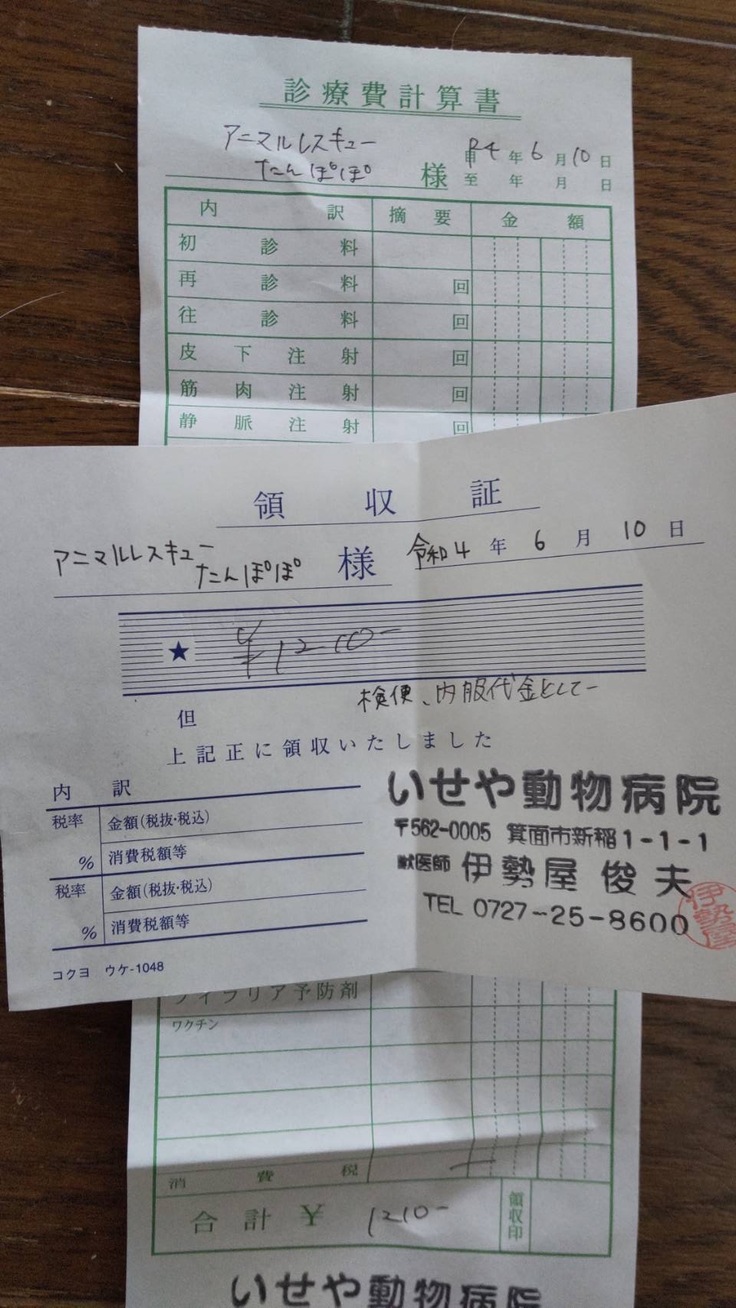 診療費計算書
アニマルレスキュー
たんぽぽ 様
自 R4 年 6 月 10 日
至 年 月 日
内訳 摘要 金額
初診料
再診料 回
往診料 回
皮下注射 回
筋肉注射 回
静脈注射 回
領収証
アニマルレスキュー
たんぽぽ 様
令和4 年 6 月 10 日
★ ¥1210-
但 検便、内服代金として
上記正に領収いたしました
内訳
税率 % 金額(税抜・税込)
消費税額等
税率 % 金額(税抜・税込)
消費税額等
コクヨ ウケ-1048
いせや動物病院
〒562-0005 箕面市新稲1-1-1
獣医師 伊勢屋 俊夫
TEL 0727-25-8600
伊勢屋
フィラリア予防剤
ワクチン
消費税
合計 ¥ 1210-
領収印
いせや動物病院